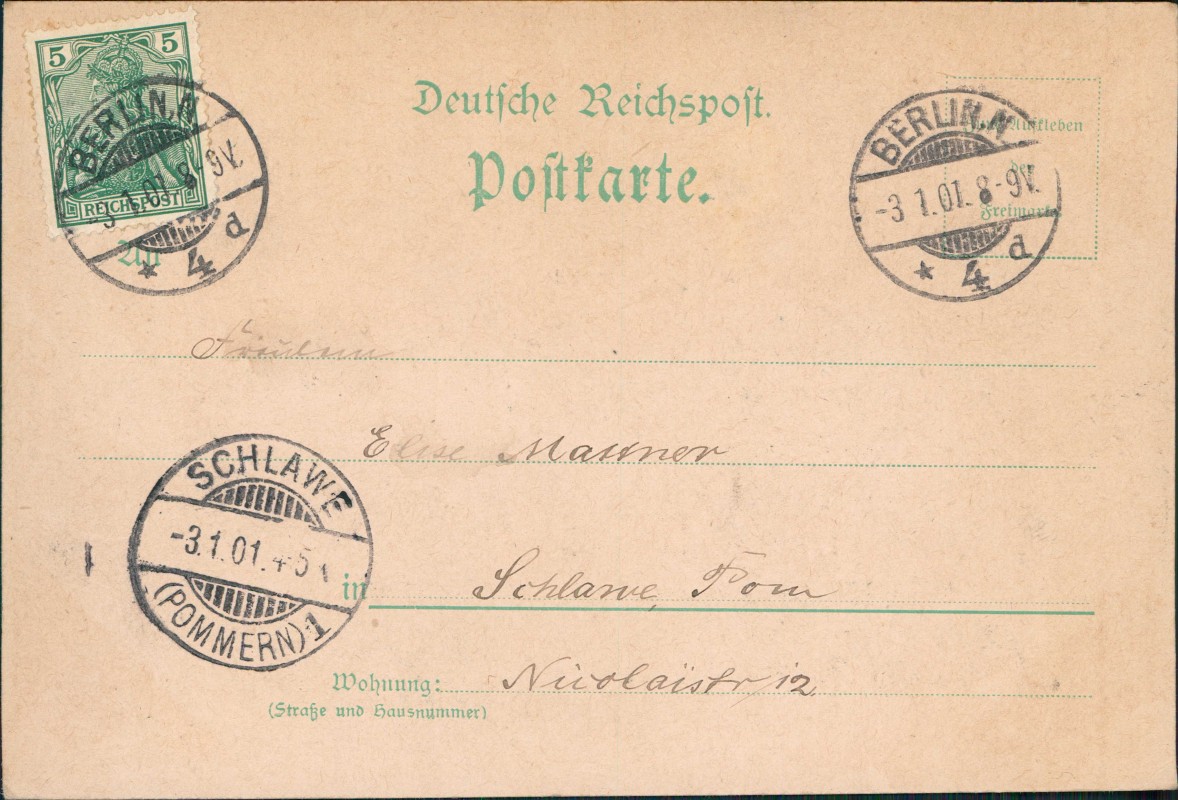 5 5
REICHSPOST
BERLIN, N
-3 1.01. 8-9V.
* 4 d
Deutsche Reichspost.
Postkarte.
BERLIN, N
-3 1.01. 8-9V.
* 4 d
Aufkleben
der
Freimarke
An
Fräulein
Elise Mattner
SCHLAWE
-3.1.01. 4-5
(POMMERN) 1
in Schlawe, Pom
Wohnung: Nicolaistr 12
(Straße und Hausnummer)